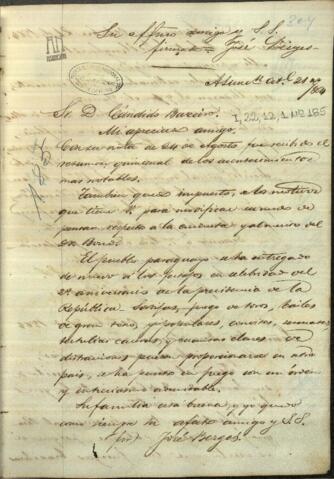 Su affmo amigo y S. S.
firmado = José Berges
Asuncn Octe 21 de
/864
Sr. D. Cándido Bareiro.
I,22,12,1 Nº 185
Mi apreciado amigo.
Con su nota de 24 de Agosto, fue recibido el
resumen quincenal de los acontecimientos
mas notables.
Tambien quedo impuesto, de los motivos
que tiene V. para modificar su modo de
pensar respecto a la
El pueblo paraguayo se ha entregado
de nuevo a los festejos en celebridad del
2º aniversario de la presidencia de la
República. Sortijas, juego de toros, bailes
de gran tono, y populares, convites,
y cuantas clases de
distracciones puede proporcionarse en este
pais, se ha puesto en juego con un orden
y entusiasmo admirable.
Su familia está buena, y yo quedo
como siempre su afmo amigo y S. S.
firdo José Berges